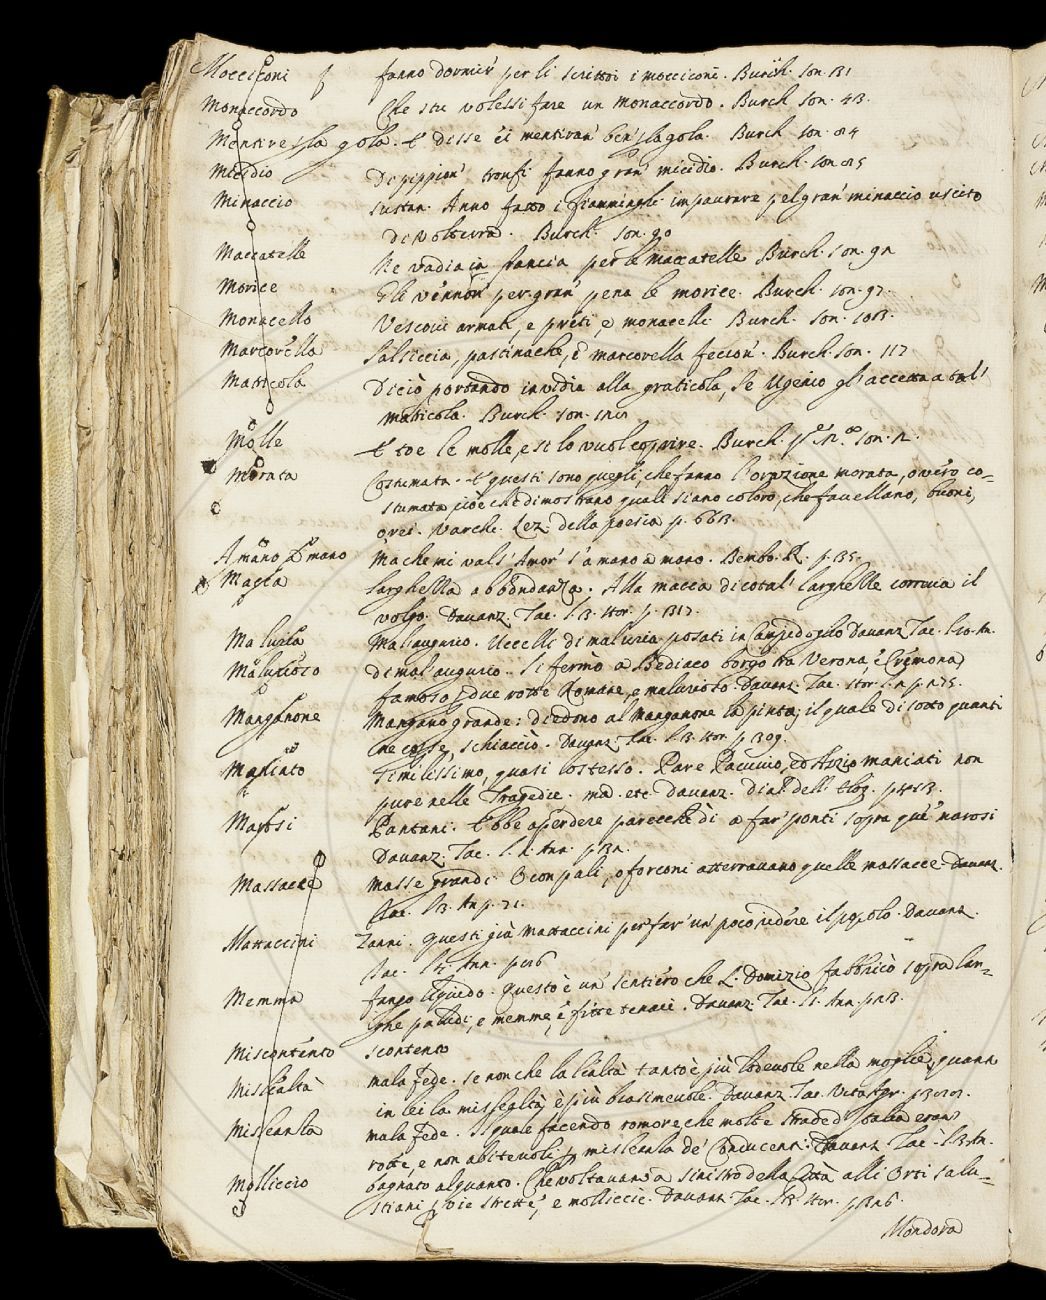 Mocciconi fanno dormir per li scrittoi i mocciconi. Burch. son. 131
Monaccordo Che stu volessi fare un monaccordo. Burch. son. 43.
Mentire p la gola. E disse ei mentiran ben p la gola. Burch son. 84
Micidio Di pippion tronfi fanno gran micidio. Burch. son. 85
Minaccio sustan. Anno fatto i fiamminghi impaurare pel gran minaccio uscito
di Volterra. Burch. son. 90
Maccatelle Ne vadia in francia per le maccatelle Burch. son. 92
Morice Gli vennon per gran pena le morice. Burch. son. 97.
Monacello Vescovi armati, e preti, e monacelli Burch. son. 108
Marcovella Salsiccia, pastinache, e marcovella feccion. Burch. son. 117
Matricola Di ciò portando invidia alla graticola, Se Ugenio gl'accetta a tal'
matricola. Burch. son.
Molle E toe le molle, e se lo vuol coprire. Burch. son. 2.
Morata Costumata. E questi sono quegli, che fanno l'orazione morata, o vero co=
stumata cioè che dimostrano quali siano coloro, che favellano, buoni,
o rei. Varchi. Lez. della poesia p. 663.
A mano a mano Ma che mi val s'Amor s'a mano a mano. Bembo. R. p. 135.
Macca larghezza abbondanza. Alla macca di cotal' larghesse correva il
volgo. Davanz. Tac. l. 3. stor. p. 317.
Maluria Mal'augurio. Uccelli di maluria posati in Campidoglio Davanz Tac. l. 10. An.
Malurioso di mal'augurio. Si fermò a Bediaco borgo tra Verona, e Cremona,
famoso p due rotte Romane, e malurioso. Davanz. Tac. stor. l. 2 p. 275.
Manganone Mangano grande: diedono al manganone la pinta, il quale di sotto quanti
ne colse, schiacciò. Davanz. Tac. l. 3. stor. p. 309.
Maniato Similissimo, quasi lo stesso. Pare Pacuvio, ed Attio maniati non
pure nelle Tragedie. ma etc. Davanz. dial. dell' Eloq. p. 413.
Marosi Pantani. Ebbe a perdere parecchi dì a far ponti sopra que' marosi
Davanz. Tac. l. 2. Ann. p.
Massacce Masse grandi. O con pali, o forconi atterravano quelle massacce. Davanz.
Tac. l. 3. An p. 71.
Mattaccini Zanni. Questi già mattaccini per far un poco ridere il popolo. Davanz.
Tac. l. 4. Ann. p.
Memma fango liquido. Questo è un sentiero che L. Domizio fabbricò sopra lar=
ghe paludi, e memme, e fitte tenaci. Davanz. Tac. l. 1. Ann p. 23.
Miscontento scontento
Mislealtà mala fede. se non che la lealtà tanto è più lodevole nella moglie, quant
in lei la mislealtà è più biasimevole. Davanz. Tac. Vita Agr. p.
Misleanza mala fede. Il quale facendo romore, che molte strade d'Italia erano
rotte, e non abitevoli p misleanza de' Conducenti. Davanz Tac. l. 3. An.
Molliccio bagnato alquanto. Che voltavano a sinistro della Città alli Orti Salu=
stiani p vie strette, e mollicce. Davanz Tac. l. 3. stor. p. 326
Mondora